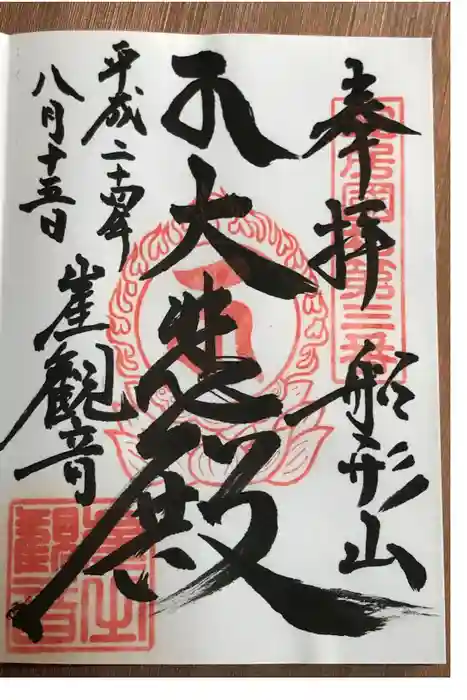 奉拝
船形山
大悲殿
平成二十四年
八月十五日
崖観音
第三番
崖之観音